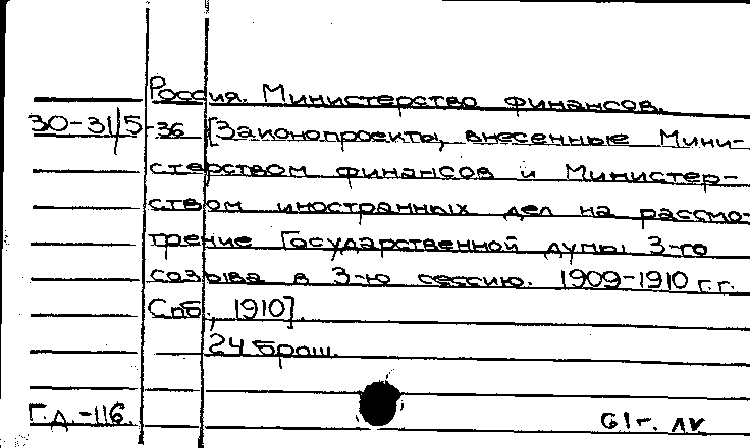 Россия. Министерство финансов.
30-31/5-36 [Законопроекты, внесенные Мини-
стерством финансов и Министер-
ством иностранных дел на рассмо-
трение Государственной думы 3-го
созыва в 3-ю сессию. 1909-1910 г.г.
Спб., 1910].
24 брош.
Г.Д.-116. 61г.